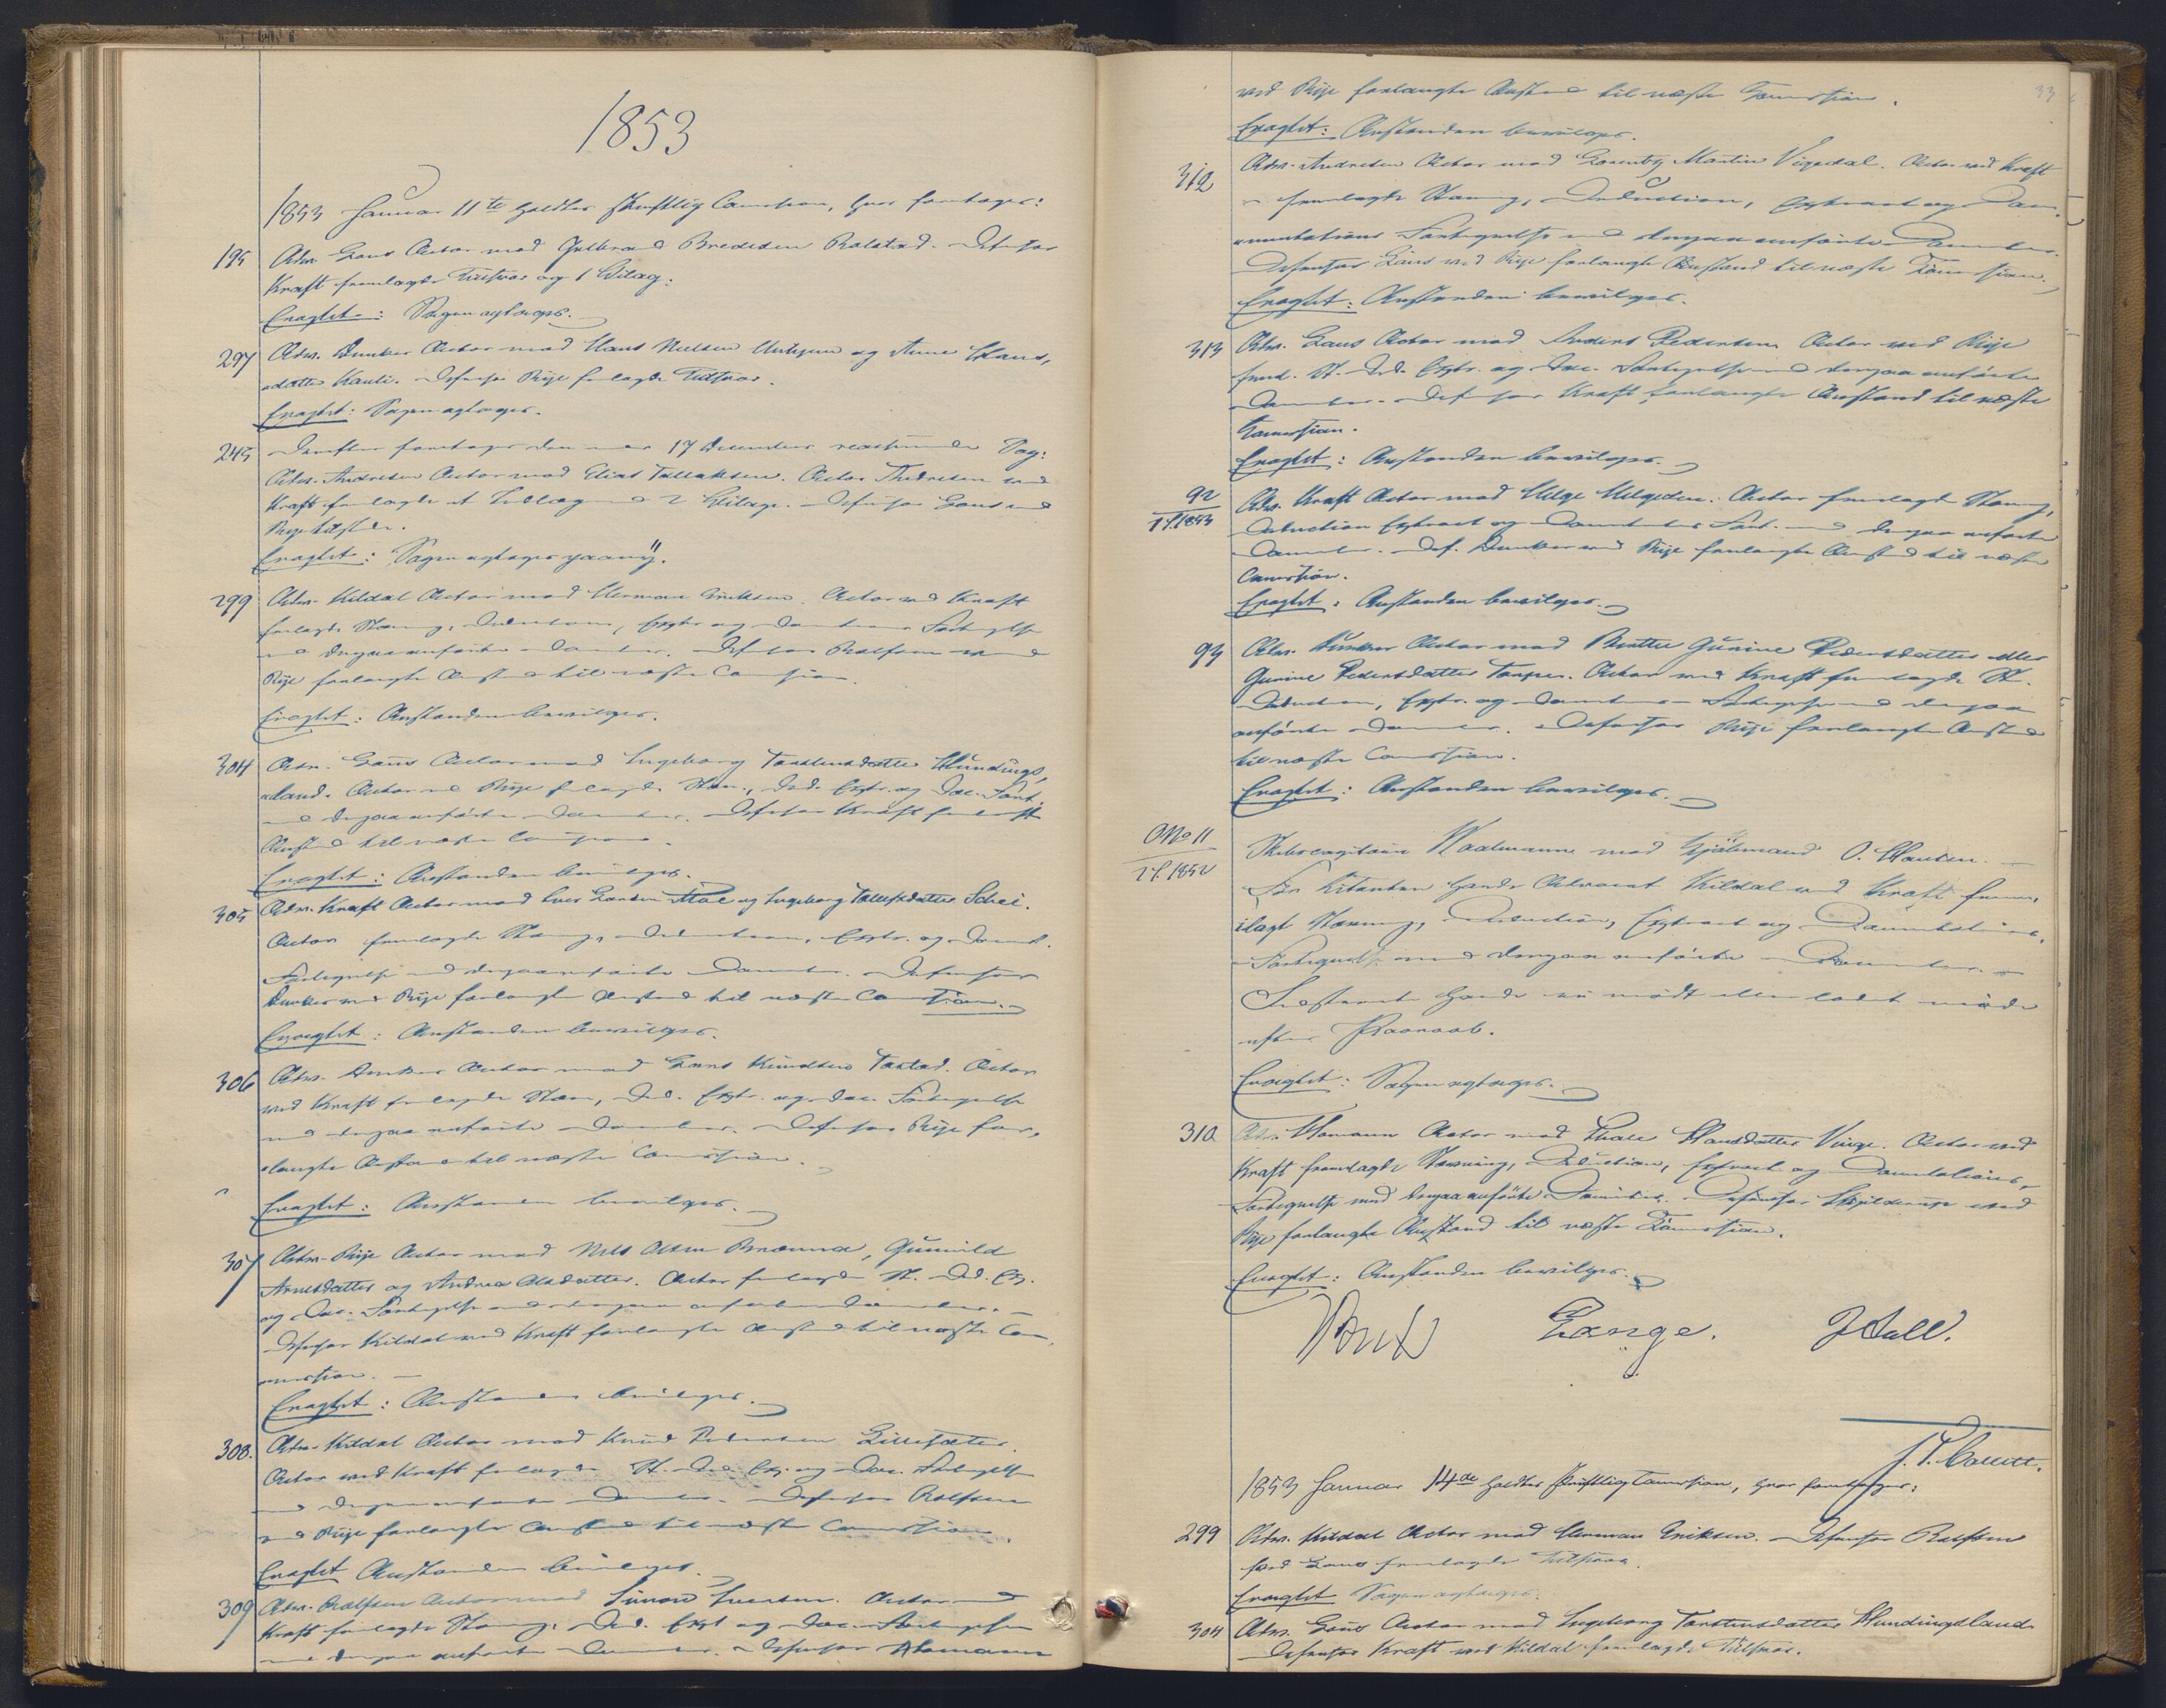 1853
1853 Januar 11te holdtes skriftlig Camission, hvor foretoges:
195 Adv. Lous Actor mod Gulbrand Bredesen Rolstad. Defensor
Kraft fremlagde Tilsvar og 1 Bilag.
Eragtet: Sagen optages.
297 Adv. Dunker Actor mod Hans Nielsen og Anne Hans-
datter Kauli. Defensor Rije fremlagde Tilsvar.
Eragtet: Sagen optages.
245 Derefter foretoges den under 17 December reassumerede Sag:
Adv. Andresen Actor mod Elias Tallaksen. Actor Andresen ved
Kraft fremlagde et Indlæg med 2 Bilage. Defensor Lous ved
Rije
Eragtet: Sagen optages paany.
299 Adv. Kildal Actor mod Herman Eriksen. Actor ved Kraft
fremlagde Stævning, Deduction, Extr. og Documentations Fortegnelse
med derpaa anførte Documenter. Defensor Rolfsen ved
Rije forlangte Anstand til næste Camission.
Eragtet: Anstanden bevilges.
304 Adv. Lous Actor mod Ingeborg Torstensdatter Hundings-
land. Actor ved Rije fremlagde Stævn., Ded. Extr. og Doc. Fort.
med derpaa anførte Documenter. Defensor Kraft forlangte
Anstand til næste Camission.
Eragtet: Anstanden bevilges.
305 Adv. Kraft Actor mod Iver Larsen Moe og Ingeborg Schei.
Actor fremlagde Stævning, Deduction, Extr. og Document.
Fortegnelse med derpaa anførte Documenter. Defensor
Dunker ved Rije forlangte Anstand til næste Camission.
Eragtet: Anstanden bevilges.
306 Adv. Dunker Actor mod Lars Knudsen Tostad. Actor
ved Kraft fremlagde Stævn, Ded. Extr. og Doc. Fortegnelse
med derpaa anførte Documenter. Defensor Rije for-
langte Anstand til næste Camission.
Eragtet: Anstanden bevilges.
307 Adv. Rije Actor mod Nils Olsen Brænna, Gunnild
Arnesdatter og Andrea Olsdatter. Actor fremlagde St. Ded. Ex.
og Doc. Fortegnelse med derpaa anførte Documenter.
Defensor Kildal ved Kraft forlangte Anstand til næste Cam-
mission.
Eragtet: Anstanden bevilges.
308. Adv. Kildal Actor mod Knud Pedersen Lillesæter.
Actor ved Kraft fremlagde St. Ded. Ex. og Doc. Fortegnelse
med derpaa anførte Documenter. Defensor Rolfsen
ved Rije forlangte Anstand til næste Camission.
Eragtet Anstanden bevilges.
309 Adv. Rolfsen Actor mod Simon Iversen. Actor ved
Kraft fremlagde Stævning, Ded. Extr og Doc. Fortegnelse
med derpaa anførte Documenter. Defensor Homann
33
ved Rije forlangte Anstand til næste Camission.
Eragtet: Anstanden bevilges.
312 Adv. Andresen Actor mod Lorentz Martin Vigedal. Actor ved Kraft
fremlagde Stævning, Deduction, Extract og Docu-
mentations Fortegnelse med derpaa anførte Documenter.
Defensor Lous ved Rije forlangte Anstand til næste Camission.
Eragtet: Anstanden bevilges.
313 Adv. Lous Actor mod Anders Pedersen. Actor ved Rije
freml. St. Ded. Extr. og Doc. Fortegnelse med derpaa anførte
Documenter. Defensor Kraft forlangte Anstand til næste
Camission.
Eragtet: Anstanden bevilges.
92
1853 Adv. Kraft Actor mod Helge Helgesen. Actor fremlagde Stævning,
Deduction Extract og Documentations Fort. med derpaa anførte
Documenter. Def. Dunker ved Rije forlangte Anstand til næste
Camission.
Eragtet: Anstanden bevilges.
93 Adv. Dunker Actor mod Berthe Gurine Pedersdatter eller
Gurine Pedersdatter Torper. Actor ved Kraft fremlagde St.
Deduction, Extr. og Documentations Fortegnelse med derpaa
anførte Documenter. Defensor Rije forlangte Anstand
til næste Camission.
Eragtet: Anstanden bevilges.
No 11
1852 Skibscapitain Waalmann mod Kjøbmand O. Hansen.
For Citanten havde Advocat Kildal ved Kraft frem-
lagt Stævning, Deduction, Extract og Documentations
Fortegnelse med derpaa anførte Documenter.
Indstævnte havde ei mødt eller ladet møde
efter Paaraab.
Eragtet: Sagen optages.
310 Adv. Homann Actor mod Thale Hansdatter Vinge. Actor ved
Kraft fremlagde Stævning, Deduction, Extract og Documentations
Fortegnelse med derpaa anførte Documenter. Defensor Hjelderup ved
Rije forlangte Anstand til næste Camission.
Eragtet: Anstanden bevilges.
Lange. Hall.
J. Collett.
1853 Januar 14de holdtes skriftlig Camission, hvor foretoges:
299 Adv. Kildal Actor mod Herman Eriksen. Defensor Rolfsen
ved Lous fremlagde Tilsvar.
Eragtet Sagen optages.
304 Adv. Lous Actor mod Ingeborg Torstensdatter Hundingsland.
Defensor Kraft ved Kildal fremlagde Tilsvar.